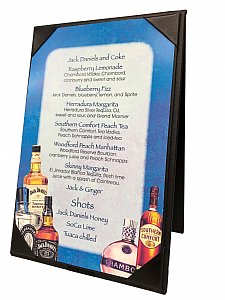 Jack Daniels and Coke
Raspberry Lemonade
Chambord Vodka, Chambord,
cranberry and sweet and sour
Blueberry Fizz
Jack Daniels, blueberry, lemon, and Sprite
Herradura Margarita
Herradura Silver Tequila, OJ,
sweet and sour, and Grand Marnier
Southern Comfort Peach Tea
Southern Comfort, Tea Vodka,
Peach Schnapps and iced tea
Woodford Peach Manhattan
Woodford Reserve Bourbon,
cranberry juice and Peach Schnapps.
Skinny Margarita
El Jimador Blanco Tequila, fresh lime
juice with a splash of Cointreau.
Jack & Ginger
Shots
Jack Daniels Honey
SoCo Lime
Tuaca chilled
JACK DANIEL'S
SOUTHERN
COMFORT
CHAMBORD